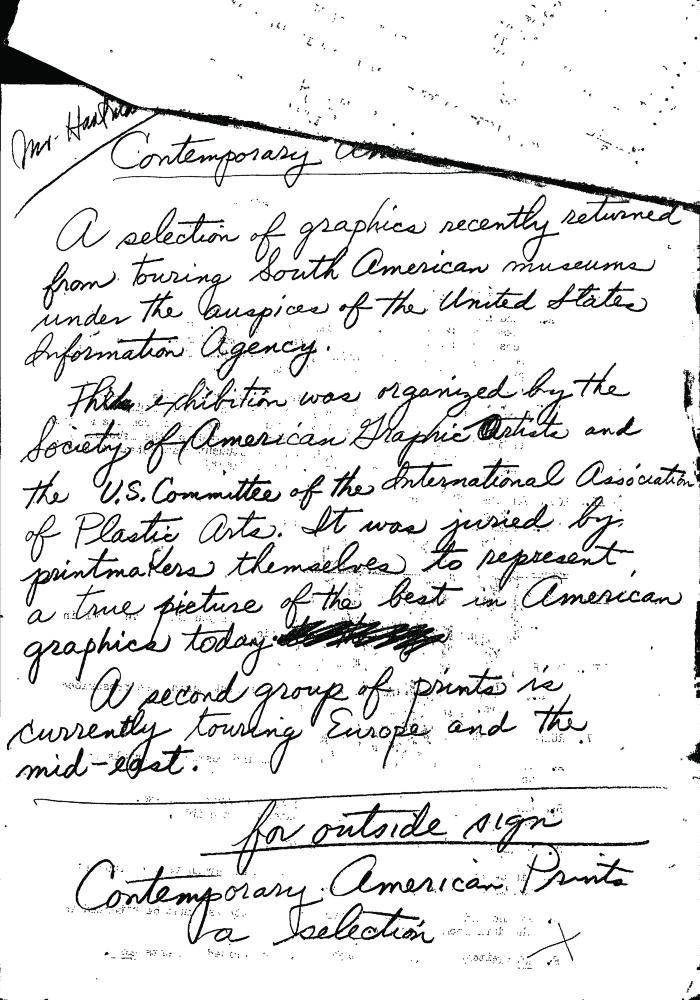 Mr.
Contemporary
A selection of graphics recently returned
from touring South American museums
under the auspices of the United States
Information Agency.
This exhibition was organized by the
Society of American Graphic Artists and
the U.S. Committee of the International Association
of Plastic Arts. It was juried by
printmakers themselves to represent
a true picture of the best in American
graphics today.
A second group of prints is
currently touring Europe and the
mid-east.
for outside sign
Contemporary American Prints
a selection